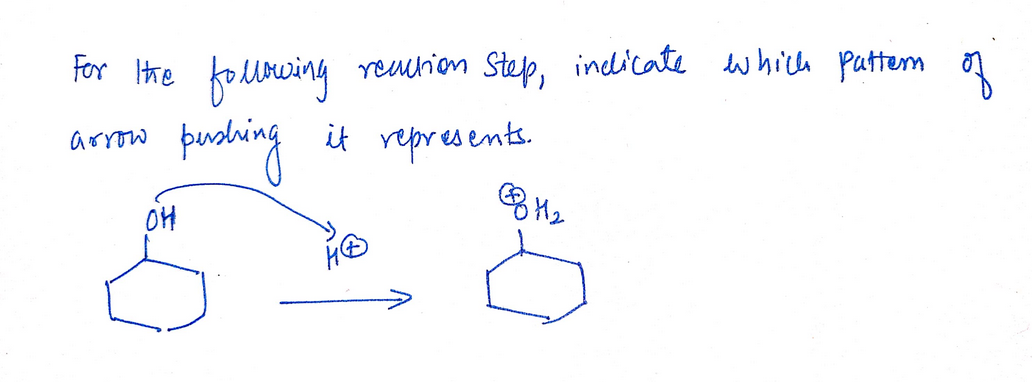 For the following reaction step, indicate which pattern of
arrow pushing it represents.
OH
H⊕
⊕
OH2